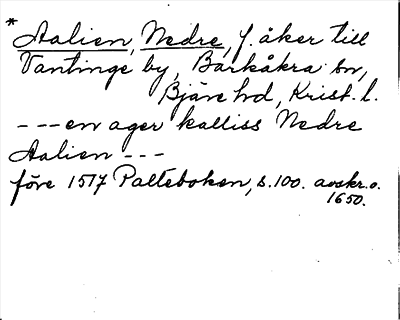 * Aalien, Nedre, f. åker till
Vantinge by, Barkåkra sn,
Bjäre hd, Krist. l.
---en ager kalliss Nedre
Aalien ---
före 1517 Palteboken, s. 100. avskr. o.
1650.